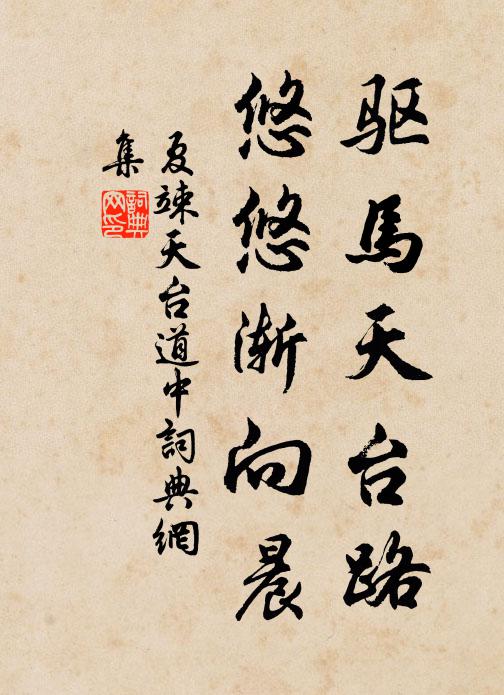 驱馬天台路
悠悠渐向晨
夏竦天台道中詞典網
集
詞典
网印